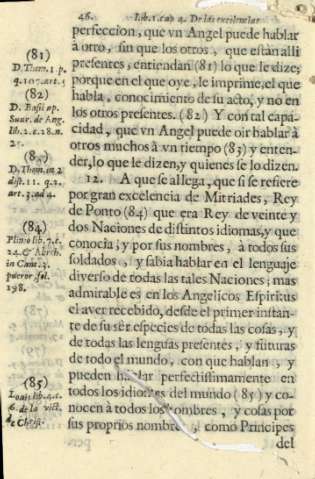 46. Lib. 1. cap. 4. De las excelencias
perfeccion, que vn Angel puede hablar
à otro, sin que los otros, que estàn alli
presentes, entiendan (81) lo que le dize;
porque en el que oye, le imprime, el que
habla, conocimiento de su acto, y no en
los otros presentes. (82) Y con tal capa-
cidad, que vn Angel puede oir hablar à
otros muchos à vn tiempo (83) y enten-
der, lo que le dizen, y quienes se lo dizen.
12. A que se allega, que si se refiere
por gran excelencia de Mitriades, Rey
de Ponto (84) que era Rey de veinte y
dos Naciones de distintos idiomas, y que
conocia, y por sus nombres, à todos sus
soldados, y sabia hablar en el lenguaje
diverso de todas las tales Naciones; mas
admirable es en los Angelicos Espiritus
el aver recebido, desde el primer instan-
te de su sèr especies de todas las cosas, y
de todas las lenguas presentes, y futuras
de todo el mundo, con que hablan, y
pueden hablar perfectissimamente en
todos los idiomas del mundo (85) y co-
nocen à todos los hombres, y cosas por
sus proprios nombres, como Principes
del
(81)
D. Thom. 1. p.
q. 107. art. 5.
(82)
D. Basil. ap.
Suar. de Ang.
lib. 2. c. 28. n.
(83)
D. Thom. in 2.
dist. 11. q. 2.
art. 3. ad 4.
(84)
Plinio lib. 7. c.
24. &
in
298.
(85)
lib. 4. c.
6. de la
de Christ.